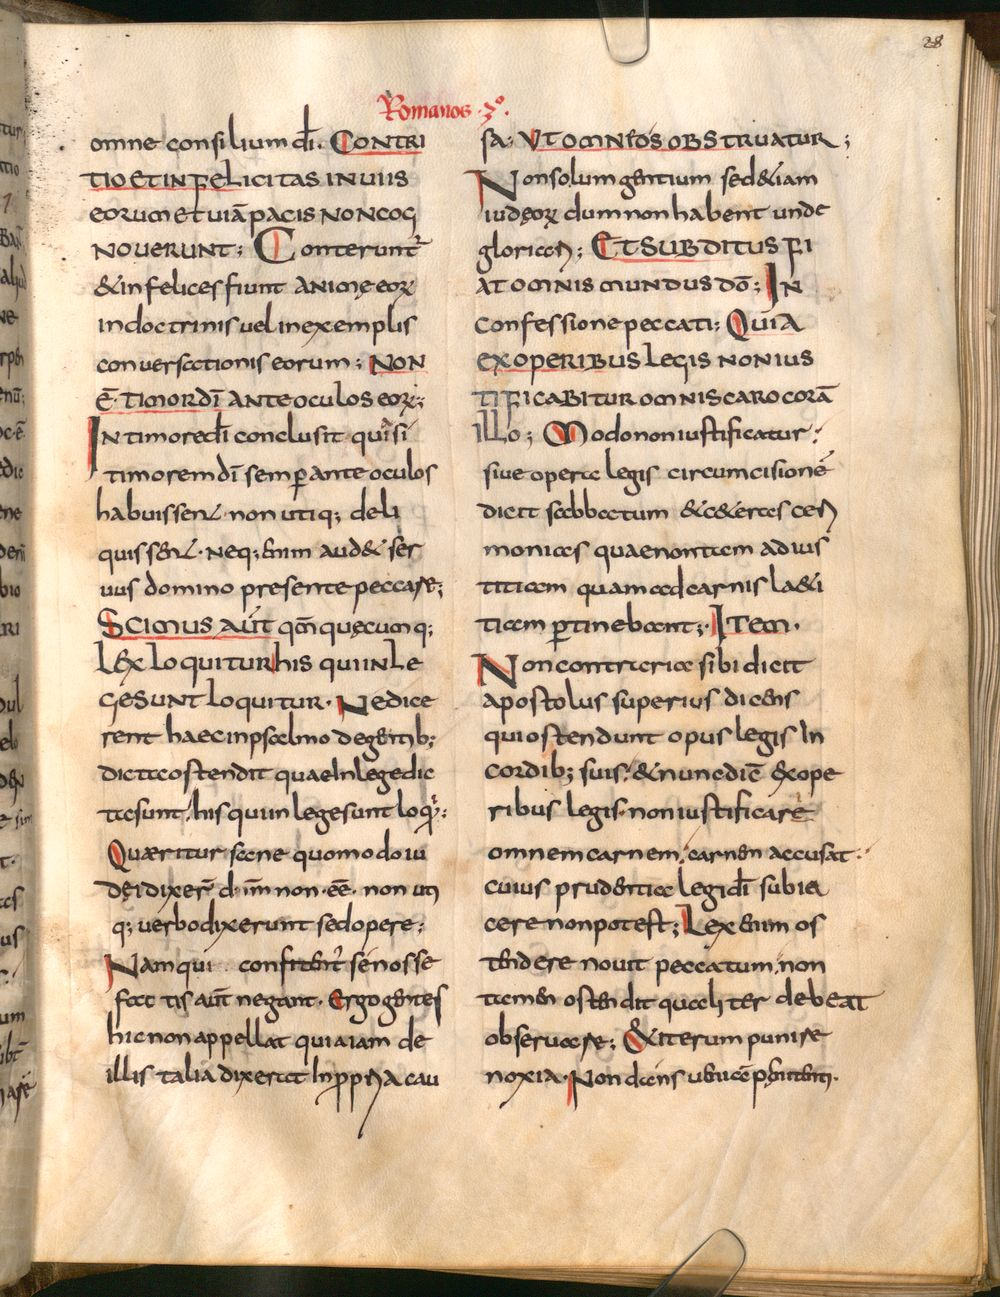 28
Romanos · 3º.
omne consilium dī. CONTRI
TIO ET INFELICITAS IN VIIS
EORUM ET VIĀ PACIS NON COG
NOVERUNT; Conterunt᷑
& infelices fiunt animę eoꝝ
in doctrinis vel in exemplis
conversationis eorum; NON
Ē · TIMOR DĪ ANTE OCULOS EOꝝ;
In timore dī conclusit quia si
timorem dī semꝑ ante oculos
habuissent non utiq; deli
quissent · Neq; enim audet ser
vus domino presente peccare;
SCIMUS AUT̄ qm̄ quęcumq;
LEX LOQUITUR his qui in LE
GE SUNT LOQUITUR · Ne dice
rent haec in psalmo de gentib;
dicta ostendit quae in lege dic
ta sunt, his qui in lege sunt loqr̄:
Quæritur sane quomodo iu
dęi dixer̄ dm̄ non · ēē · non uti
q; verbo dixerunt sed opere;
Nam qui confitent᷑ se nosse
factis aut̄ negant · Ergo gentes
hic non appellat quia iam de
illis talia dixerat In ꝓpria cau
sa; UT OMNE OS OBSTRUATUR;
Non solum gentium sed & iam
iudęoꝝ dum non habent unde
glorient᷑; ET SUBDITUS FI
AT OMNIS MUNDUS DŌ; In
confessione peccati; QUIA
EX OPERIBUS LEGIS NON IUS
TIFICABITUR OMNIS CARO CORĀ
ILLO; Modo non iustificatur;
sive opera legis circumcisionē
dicit sabbatum & cæteras ceri
monias quae non tam ad ius
titiam quam ad carnis læti
tiam ꝑtinebant; · ITEM ·
Non contraria sibi dicit
apostolus superius dicens
qui ostendunt opus legis In
cordib; suis; & nunc diē ex ope
ribus legis · non iustificare
omnem carnem, carnem accusat ·
cuius prudentia legi dī subia
cere non potest; Lex enim os
tendere novit peccatum, non
tamen ostendit qualiter debeat
observare; & iterum punire
noxia · Non dans veniā pęnitenti ·